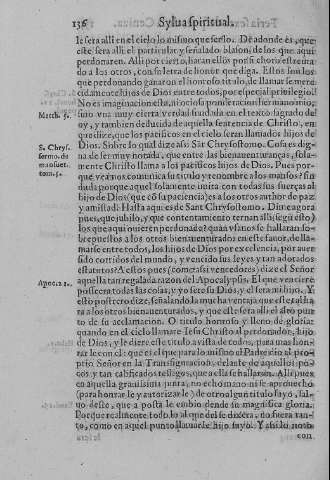 136 Sylua spiritual.
le sera alli en el cielo lo mismo que serlo. De adonde es, que
este sera alli el particular y señalado blason, de los que aqui
perdonaren. Alli por cierto, haran ellos por si choro
do a los otros, con letra de honor que diga. Estos son los
que perdonando ganaron el honroso titulo, de llamarse
cidamente hijos de Dios entre todos, por especial priuilegio.
No es imaginacion esta, ni ociosa ponderacion hermano mio,
Matth. 5.
sino vna muy cierta verdad fundada en el texto sagrado de
oy, y tambien deduzida de aquella sentencia de Christo, en
que dize, que los pacificos en el cielo seran llamados hijos de
S. Chrys.
Dios. Sobre lo qual dize assi San Chrysostomo. Cosa es dig-
sermo. de
na de ser muy notada, que entre las bienauenturanças, sola-
mente Christo llama a los pacificos hijos de Dios. Pues por-
tom. 5.
que veamos comunica su titulo y renombre a los mansos? sin
duda porque aquel solamente imita con todas sus fuerças al
hijo de Dios (que es su paciencia) que a los otros author de paz
y amistad. Hasta aqui es de Sant Chrysostomo. Dime agora
pues, que jubilo, y que contentamiento ternan alli (segun esto)
los que aqui ouieren perdonado? quan vfanos se hallaran so-
brepuestos a los otros bienauenturados en este fauor, de lla-
marse entre todos, los hijos de Dios por excelencia, por auer
sido corridos del mundo, y vencido sus leyes y tan adorados
estatutos? A estos pues (como a si vencedores) dize el Señor
aquella tan regalada razon del Apocalypsi. El que venciere
Apoc. 21.
posseera todas las cosas, y yo sere su Dios, y el sera mi hijo. Y
esto postrero dize, señalando la mucha ventaja que este
ra a los otros bienauenturados, y que este sera alli el alto pun-
to de su aclamacion. O titulo honroso y lleno de gloria:
quando en el cielo llamare Iesu Christo al perdonador, hijo
de Dios, y le diere este titulo a vista de todos, para mas hon-
rarle con el: que es el que para lo mismo dio el Padre al pro-
prio Señor en la Transfiguracion, delante de aquellos po-
cos y tan calificados testigos, que a ella se hallaron. Alli pues
en aquella grauissima junta, no echo mano ni se aprouecho
(para honrarle y autorizarle) de otro algun titulo suyo, sal-
uo deste, que a posta le embio dende su magnifica gloria.
Porque realmente todo lo al que del se dixera, no fuera tan-
to, como en aquel punto llamarle hijo suyo. Y assi lo noto
con